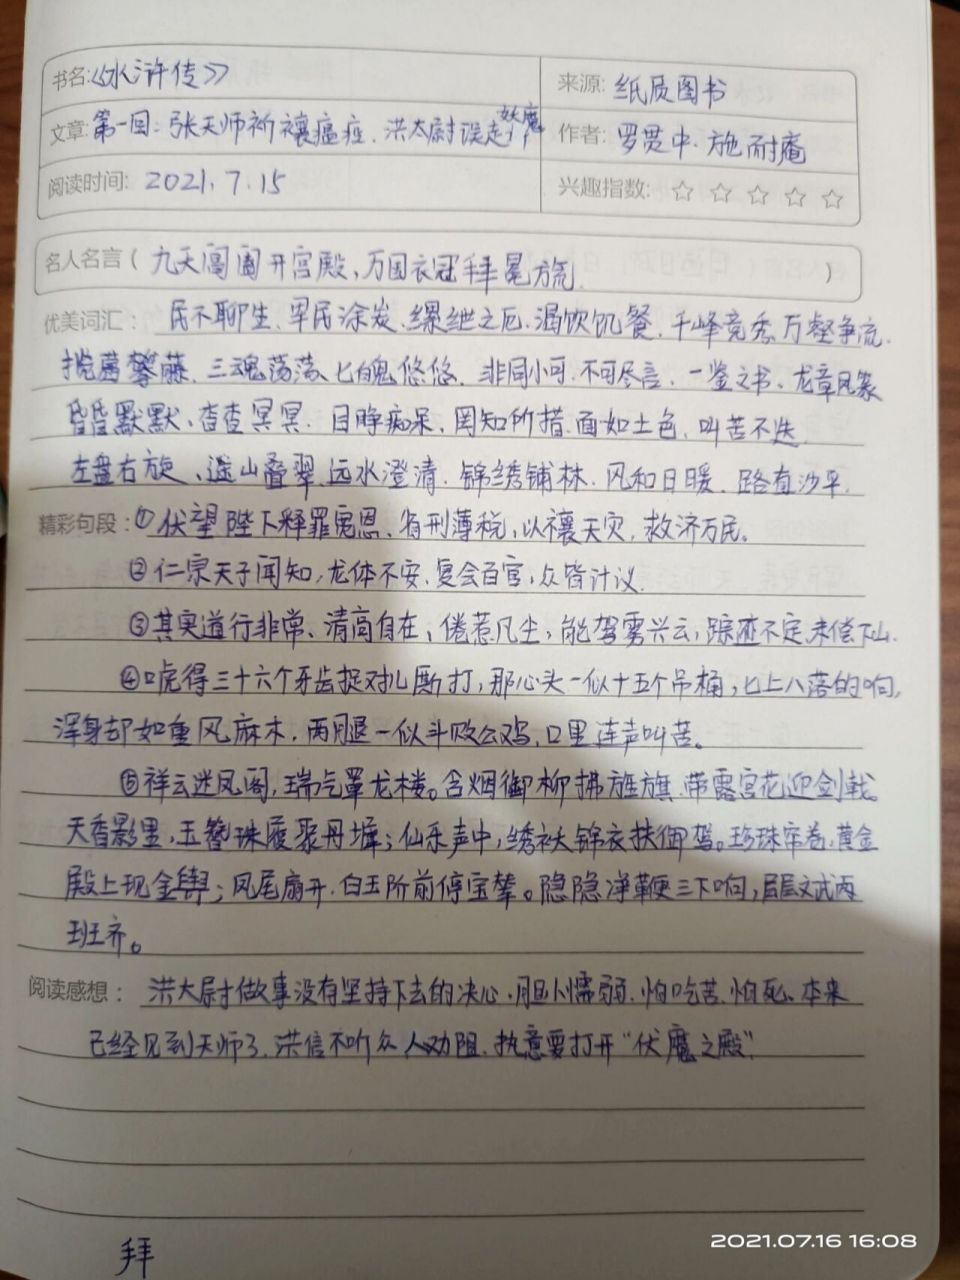 书名:《水浒传》 来源: 纸质图书
文章: 第一回: 张天师祈禳瘟疫. 洪太尉误走妖魔 作者: 罗贯中. 施耐庵
阅读时间: 2021.7.15 兴趣指数: ☆ ☆ ☆ ☆ ☆
名人名言( 九天阊阖开宫殿,万国衣冠拜冕旒. )
优美词汇: 民不聊生、军民涂炭、缧绁之厄、渴饮饥餐、千峰竞秀、万壑争流、
揽葛攀藤、三魂荡荡、七魄悠悠、非同小可、不可尽言、一鉴之书、龙章凤篆
昏昏默默、杳杳冥冥、目睁痴呆、罔知所措、面如土色、叫苦不迭
左盘右旋、遥山叠翠、远水澄清、锦绣铺林、风和日暖、路直沙平.
精彩句段: ①伏望陛下释罪宽恩、省刑薄税,以禳天灾,救济万民。
②仁宗天子闻知,龙体不安.复会百官,众皆计议.
③其实道行非常、清高自在,倦惹凡尘,能驾雾兴云,踪迹不定,未偿下山.
④唬得三十六个牙齿捉对儿厮打,那心头一似十五个吊桶,七上八落的响,
浑身却如重风麻木,两腿一似斗败公鸡,口里连声叫苦。
⑤祥云迷凤阁,瑞气罩龙楼。含烟御柳拂旌旗,带露宫花迎剑戟。
天香影里,玉簪珠履聚丹墀;仙乐声中,绣袄锦衣扶御驾。珍珠帘卷,黄金
殿上现金舆;凤尾扇开,白玉阶前停宝辇。隐隐净鞭三下响,层层文武两
班齐。
阅读感想: 洪太尉做事没有坚持下去的决心,胆小懦弱,怕吃苦、怕死、本来
已经见到天师了,洪信不听众人劝阻.执意要打开“伏魔之殿”
拜
2021.07.16 16:08